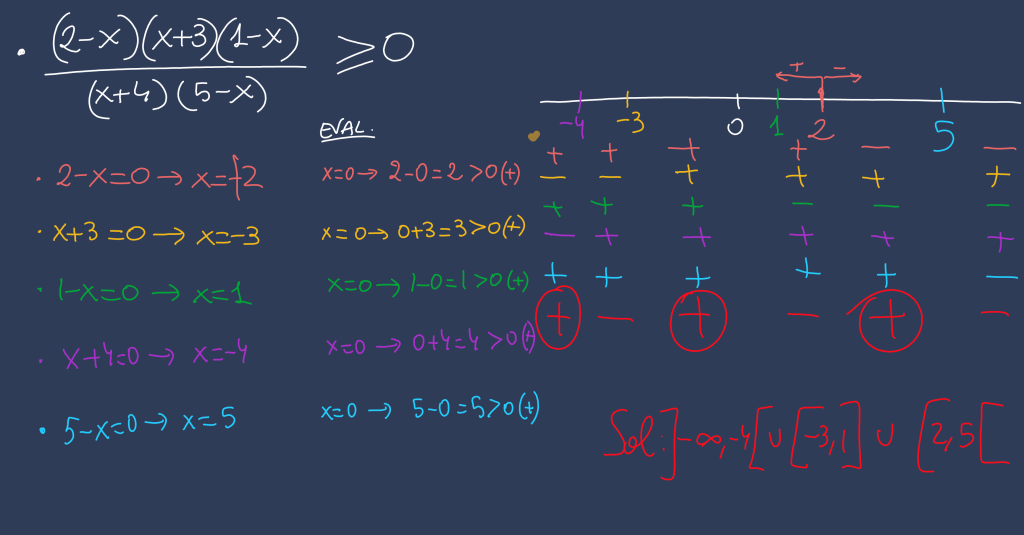 • (2-x)(x+3)(1-x) / (x+4)(5-x) ≥ 0
+ -
-4 -3 0 1 2 5
EVAL.
• 2-x=0 → x=+2
x=0 → 2-0=2>0(+)
• x+3=0 → x=-3
x=0 → 0+3=3>0(+)
• 1-x=0 → x=1
x=0 → 1-0=1>0(+)
• x+4=0 → x=-4
x=0 → 0+4=4>0(+)
• 5-x=0 → x=5
x=0 → 5-0=5>0(+)
+ + + + - -
- - + + + +
+ + + - - -
- + + + + +
+ + + + + -
+ - + - + -
Sol: ]-∞,-4[ ∪ [-3,1] ∪ [2,5[